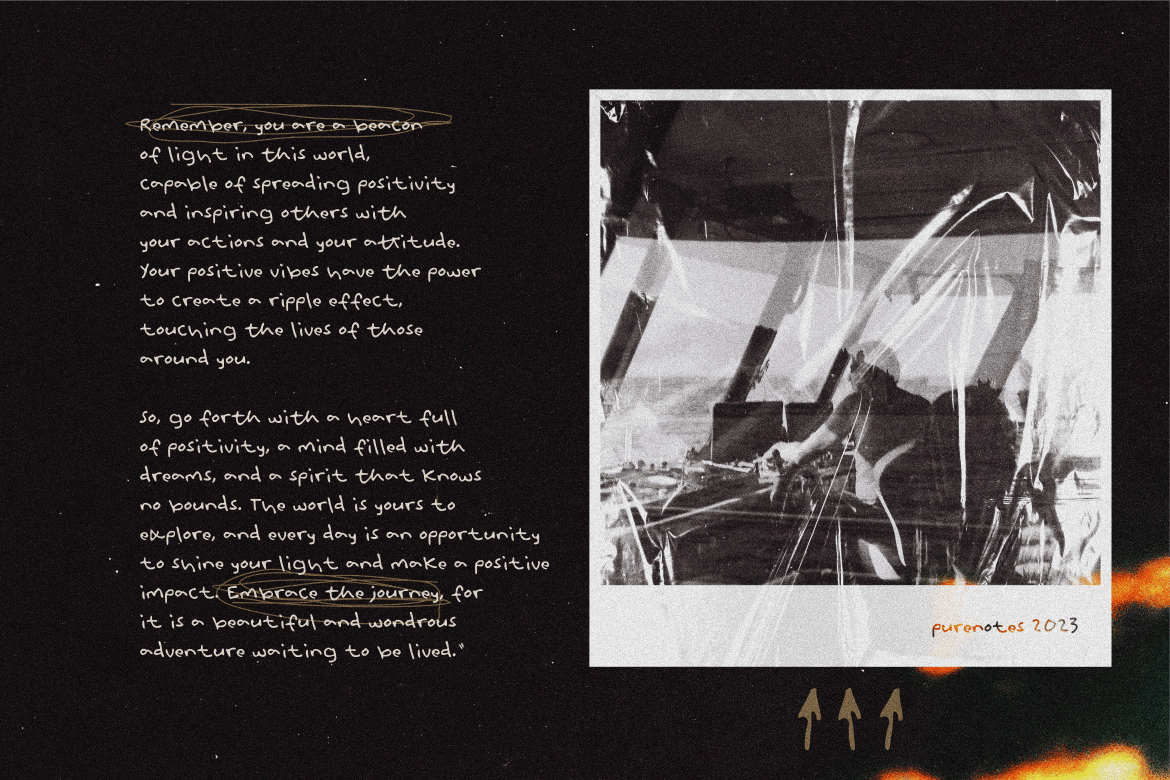 Remember, you are a beacon
of light in this world,
capable of spreading positivity
and inspiring others with
your actions and your attitude.
Your positive vibes have the power
to create a ripple effect,
touching the lives of those
around you.
So, go forth with a heart full
of positivity, a mind filled with
dreams, and a spirit that knows
no bounds. The world is yours to
explore, and every day is an opportunity
to shine your light and make a positive
impact. Embrace the journey, for
it is a beautiful and wondrous
adventure waiting to be lived."
purenotes 2023